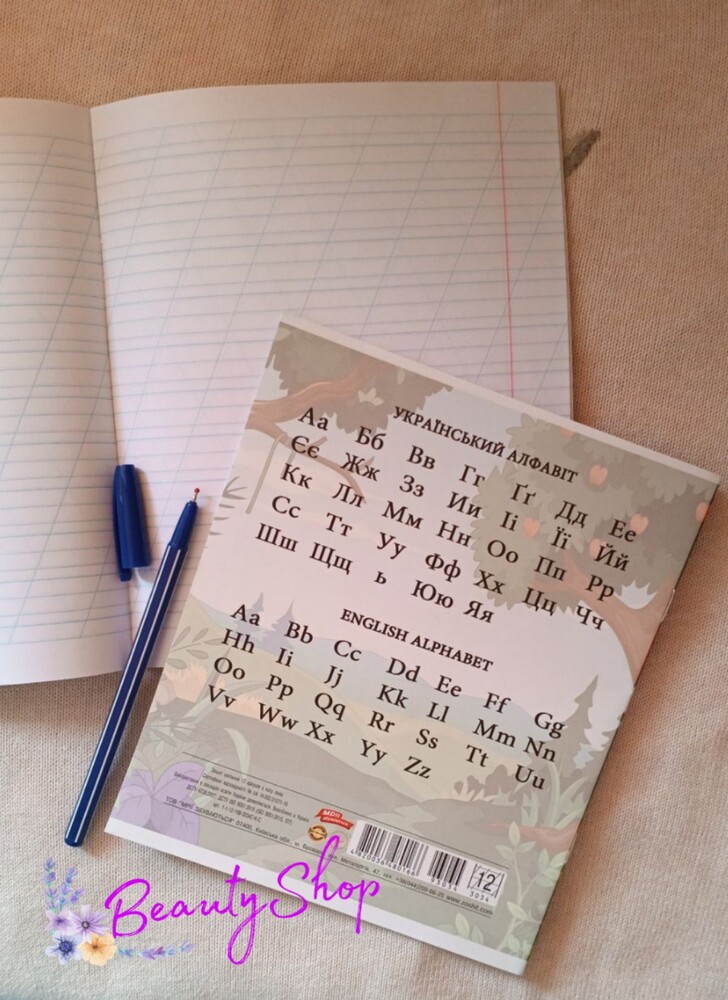 УКРАЇНСЬКИЙ АЛФАВІТ
Аа Бб Вв Гг Ґґ Дд Ее
Єє Жж Зз Ии Іі Її Йй
Кк Лл Мм Нн Оо Пп Рр
Сс Тт Уу Фф Хх Цц Чч
Шш Щщ ь Юю Яя
ENGLISH ALPHABET
Aa Bb Cc Dd Ee Ff Gg
Hh Ii Jj Kk Ll Mm Nn
Oo Pp Qq Rr Ss Tt Uu
Vv Ww Xx Yy Zz
12
3034
BeautyShop